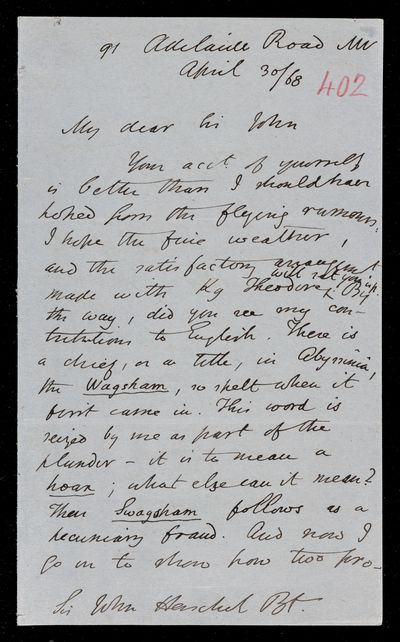 91 Adelaide Road NW
April 30/68
402
My dear Sir John
Your acct. of yourself
is better than I should have
hoped from the flying rumours.
I hope the fine weather,
and the satisfactory arrangement
made with Kg Theodore, will set you up. By
the way, did you see my con-
tributions to English. There is
a chief, or a title, in Abyssinia,
the Wagsham, so spelt when it
first came in. This word is
seized by me as part of the
plunder - it is to mean a
hoax; what else can it mean?
Then Swagsham follows as a
pecuniary fraud. And now I
go on to show how two pro-
Sir John Herschel Bt.